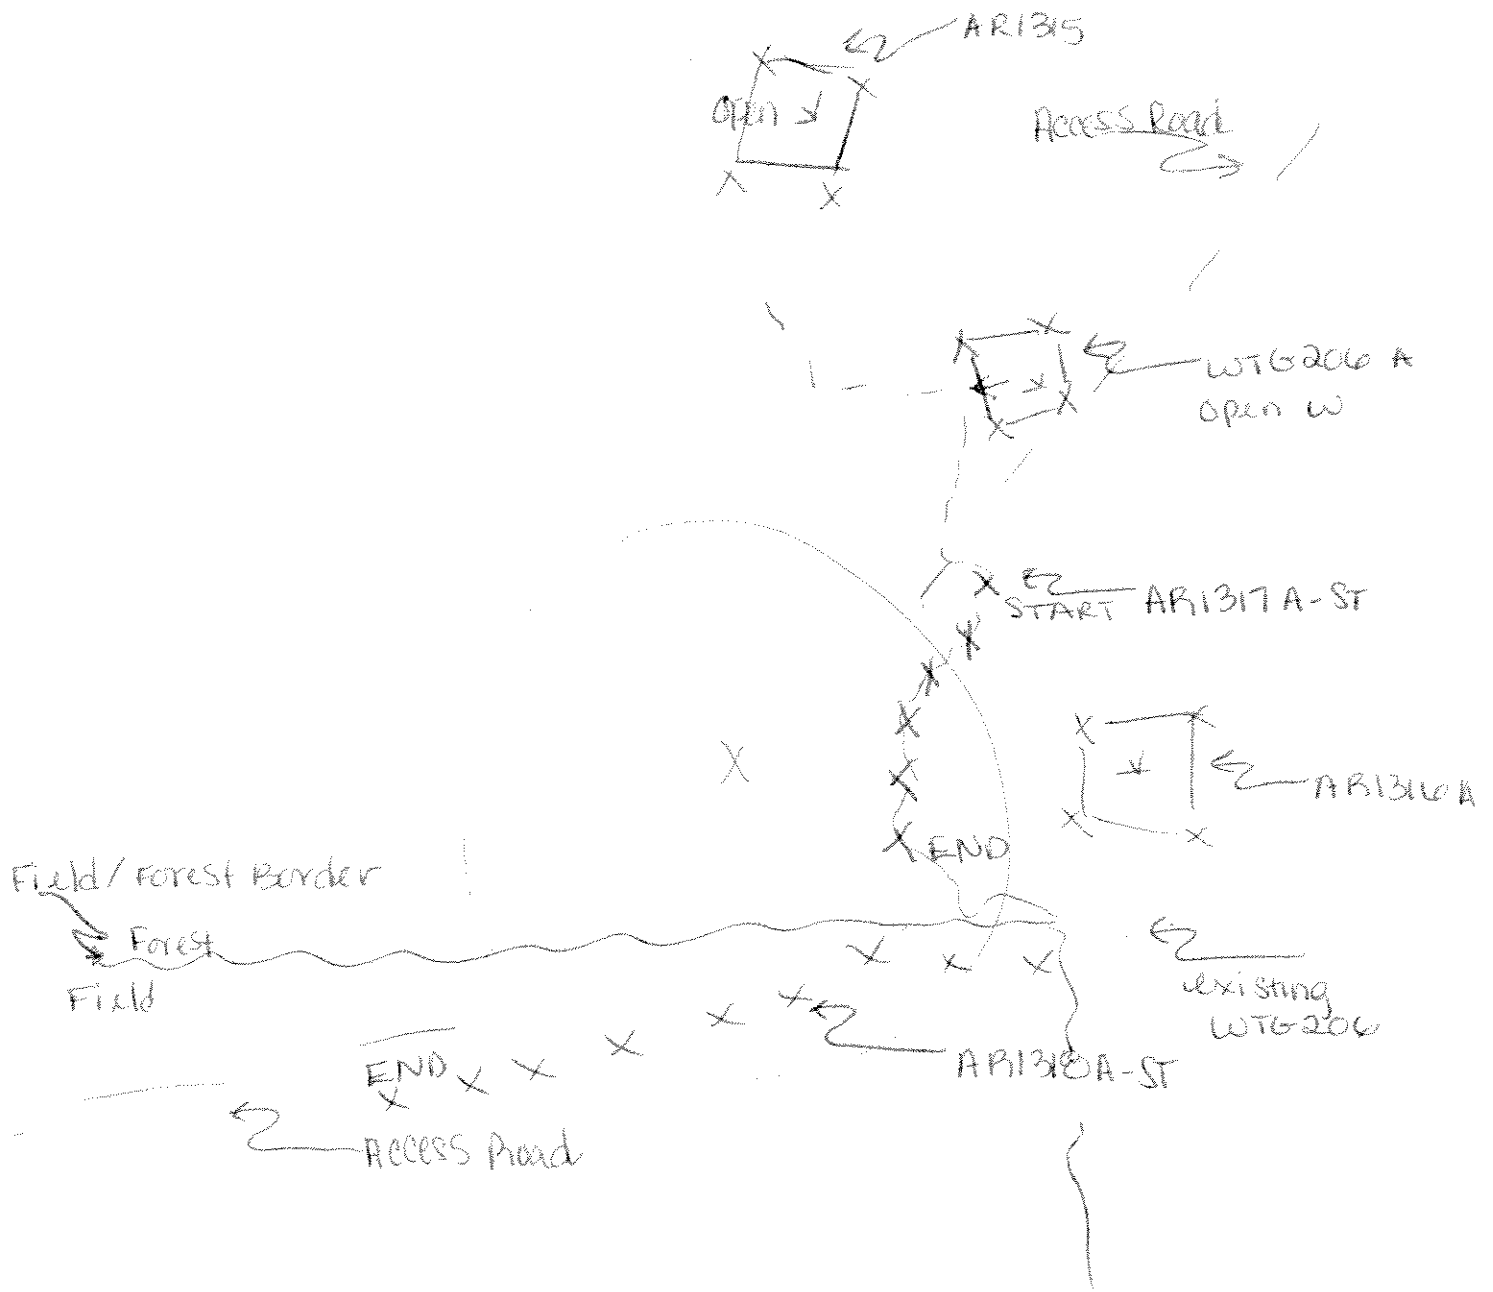 AR1315
open
Access Road
WTG206 A
open W
START AR1317A-ST
AR1316A
END
Field/Forest Border
Forest
Field
existing
WTG206
END
AR1318A-ST
Access Road